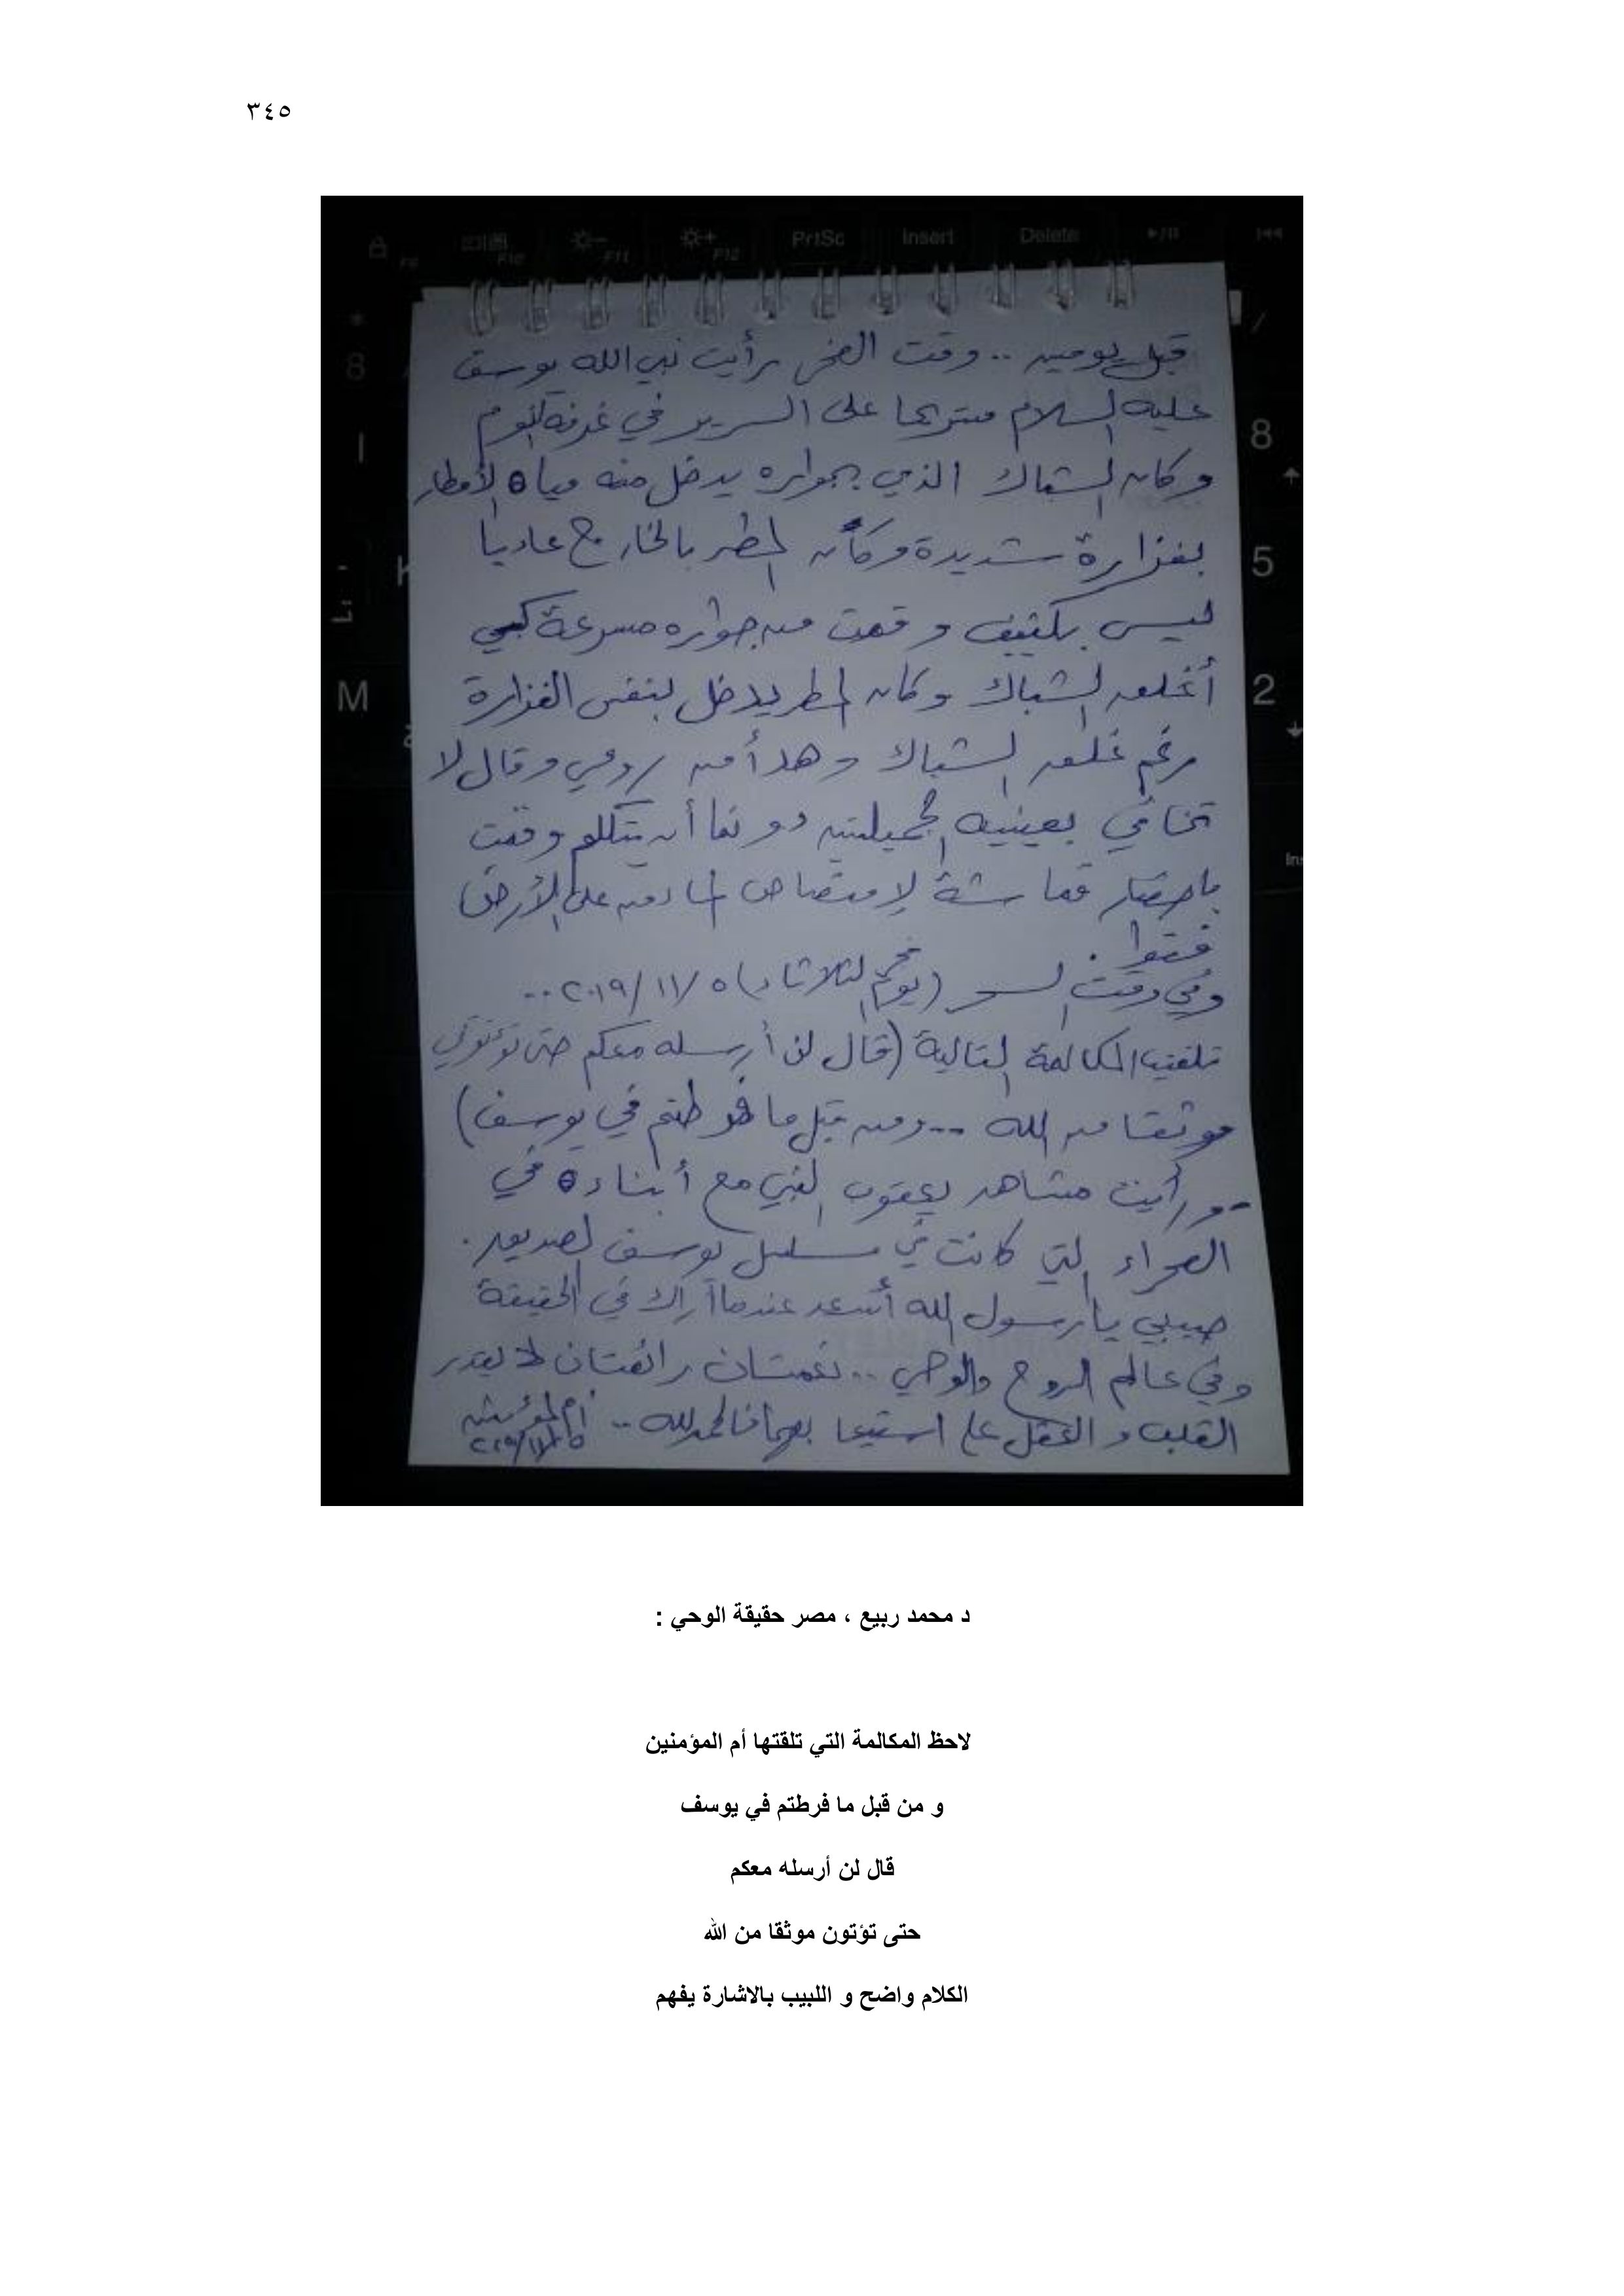 ٣٤٥
PrtSc Insert Delete
F10 F11 F12
8
5
2
M
قبل يومين .. وقت الفجر رأيت نبي الله يوسف
عليه السلام متربعا على السرير في غرفة النوم
وكان الشباك الذي بجواره يدخل منه مياه الأمطار
بغزارة شديدة وكأن المطر بالخارج عاديا
ليس بكثيف وقمت من جواره مسرعة كي
أغلق الشباك وكان المطر يدخل بنفس الغزارة
رغم غلق الشباك وهدأ من روعي وقال لا
تخافي بعينيه الجميلتين دونما أن يتكلم وقمت
بإحضار قماشة لإمتصاص الماء من على الأرض
فورا.
وفي وقت السحر (يوم فجر الثلاثاء) ٥/١١/٢٠١٩ ..
تلقيت المكالمة التالية (قال لن أرسله معكم حتى تؤتون
موثقا من الله -- ومن قبل ما فرطتم في يوسف)
ورأيت مشاهد يعقوب النبي مع أبناءه في
الصحراء التي كانت في مسلسل يوسف الصديق.
حبيبي يا رسول الله أسعد عندما أراك في الحقيقة
وفي عالم الروح والوحي .. نعمتان رائعتان لا يقدر
القلب و العقل على استيعابهما فالحمد لله .. أم المؤمنين
٢٠١٩/١١/٥
د محمد ربيع ، مصر حقيقة الوحي :
لاحظ المكالمة التي تلقتها أم المؤمنين
و من قبل ما فرطتم في يوسف
قال لن أرسله معكم
حتى تؤتون موثقا من الله
الكلام واضح و اللبيب بالاشارة يفهم